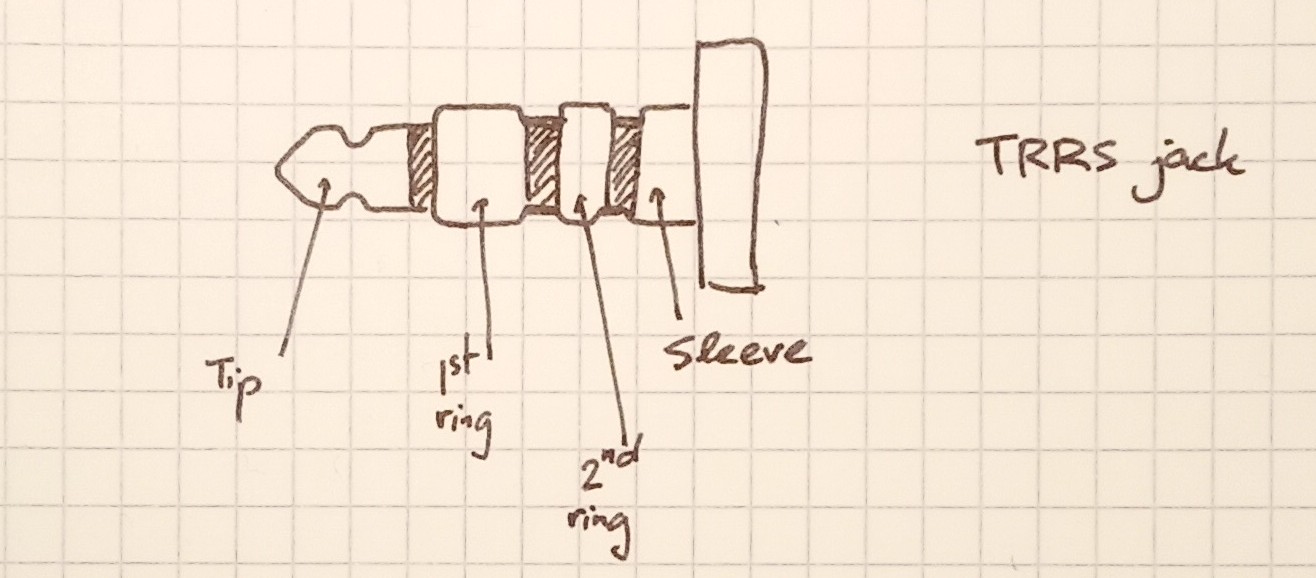 TRRS jack
Tip
1st
ring
2nd
ring
Sleeve